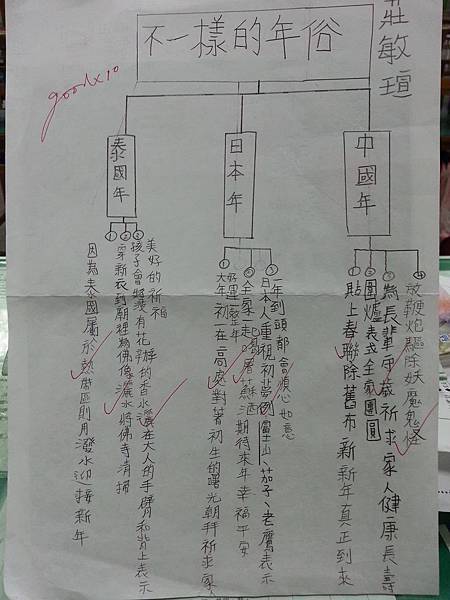 莊敏瑄
不一樣的年俗
goodx10
中國年
① 貼上春聯除舊布新新年真正到來
② 圍爐表示全家團圓
③ 為長輩守歲祈求家人健康長壽
④ 放鞭炮驅除妖魔鬼怪
日本年
① 大年初一在高處對著初生的曙光朝拜祈求家
好運整年
② 全家一起喝屠蘇酒期待來年幸福平安
③ 日本人重視初夢夢到富士山、茄子、老鷹表示
一年到頭都會順心如意
泰國年
① 因為泰國屬於熱帶區則用潑水迎接新年
② 穿新衣到廟裡為佛像灑水將佛寺清掃
③ 孩子會將裝有花瓣的香水潑在大人的手臂和背上表示
美好的祈福